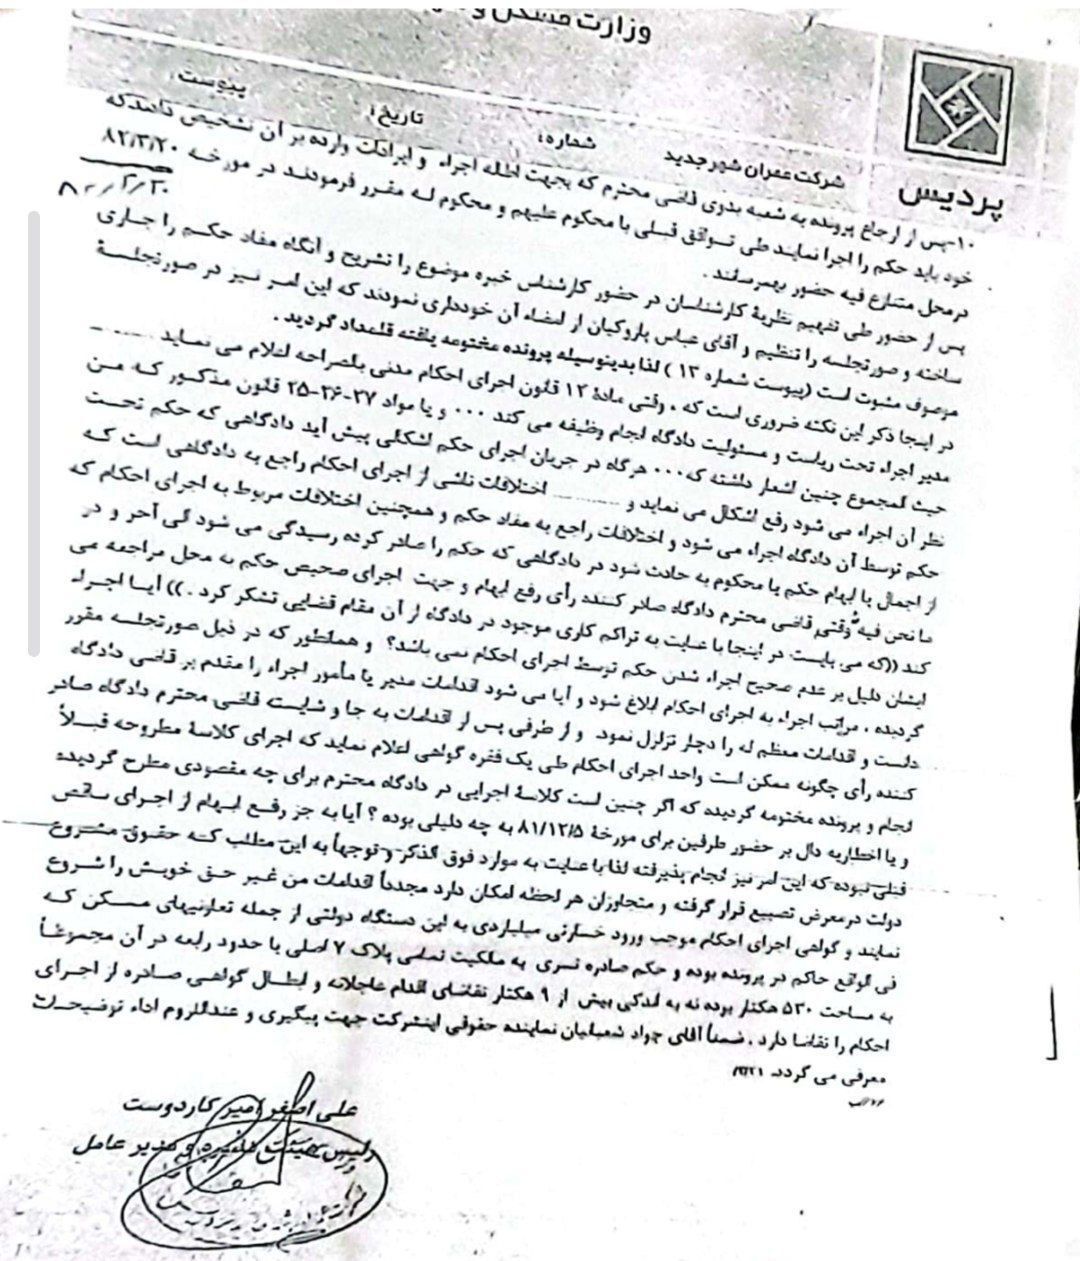 وزارت مسکن و
پردیس
شرکت عمران شهر جدید
شماره:
تاریخ:
پیوست
۱۰-پس از ارجاع پرونده به شعبه بدوی قاضی محترم که بجهت اطاله اجراء و ایرادات وارده بر آن تشخیص دادند که
خود باید حکم را اجرا نمایند طی توافق قبلی با محکوم علیهم و محکوم له مقرر فرمودند در مورخه ۸۲/۳/۲۰
در محل متنازع فیه حضور بهمرسانند .
پس از حضور طی تفهیم نظریهٔ کارشناسان در حضور کارشناس خبره موضوع را تشریح و آنگاه مفاد حکم را جاری
ساخته و صورتجلسه را تنظیم و آقای عباس پاروکیان از امضاء آن خودداری نمودند که این امر نیز در صورتجلسهٔ
موصوف مثبوت است (پیوست شماره ۱۳ ) لذا بدینوسیله پرونده مختومه یافته قلمداد گردید .
در اینجا ذکر این نکته ضروری است که ، وقتی مادهٔ ۱۲ قانون اجرای احکام مدنی بالصراحه اعلام می نماید
مدیر اجراء تحت ریاست و مسئولیت دادگاه انجام وظیفه می کند ۰۰۰ و یا مواد ۲۷-۲۶-۲۵ قانون مذکور که من
حیث المجموع چنین اشعار داشته که ۰۰۰ هرگاه در جریان اجرای حکم اشکالی پیش آید دادگاهی که حکم تحت
نظر آن اجراء می شود رفع اشکال می نماید و ......... اختلافات ناشی از اجرای احکام راجع به دادگاهی است که
حکم توسط آن دادگاه اجراء می شود و اختلافات راجع به مفاد حکم و همچنین اختلافات مربوط به اجرای احکام که
از اجمال یا ابهام حکم یا محکوم به حادث شود در دادگاهی که حکم را صادر کرده رسیدگی می شود الی آخر و در
ما نحن فیه وقتی قاضی محترم دادگاه صادر کننده رأی رفع ابهام و جهت اجرای صحیح حکم به محل مراجعه می
کند ((که می بایست در اینجا با عنایت به تراکم کاری موجود در دادگاه از آن مقام قضایی تشکر کرد . )) آیا اجراء
ایشان دلیل بر عدم صحیح اجراء شدن حکم توسط اجرای احکام نمی باشد؟ و همانطور که در ذیل صورتجلسه مقرر
گردیده ، مراتب اجراء به اجرای احکام ابلاغ شود و آیا می شود اقدامات مدیر یا مأمور اجراء را مقدم بر قاضی دادگاه
دانست و اقدامات معظم له را دچار تزلزل نمود و از طرفی پس از اقدامات به جا و شایسته قاضی محترم دادگاه صادر
کننده رأی چگونه ممکن است واحد اجرای احکام طی یک فقره گواهی اعلام نماید که اجرای کلاسهٔ مطروحه قبلاً
انجام و پرونده مختومه گردیده که اگر چنین است کلاسهٔ اجرایی در دادگاه محترم برای چه مقصودی مطرح گردیده
و یا اخطاریه دال بر حضور طرفین برای مورخهٔ ۸۱/۱۲/۵ به چه دلیلی بوده ؟ آیا به جز رفع ابهام از اجرای ناقص
قبلی نبوده که این امر نیز انجام پذیرفته لذا با عنایت به موارد فوق الذکر و توجهاً به این مطلب که حقوق مشروع
دولت در معرض تضییع قرار گرفته و متجاوزان هر لحظه امکان دارد مجدداً اقدامات من غیر حق خویش را شروع
نمایند و گواهی اجرای احکام موجب ورود خسارتی میلیاردی به این دستگاه دولتی از جمله تعاونیهای مسکن که
فی الواقع حاکم در پرونده بوده و حکم صادره تسری به ملکیت تمامی پلاک ۷ اصلی با حدود رابعه در آن مجموعاً
به مساحت ۵۳۰ هکتار بوده نه به اندکی بیش از ۹ هکتار تقاضای اقدام عاجلانه و ابطال گواهی صادره از اجرای
احکام را تقاضا دارد . ضمناً آقای جواد شعبانیان نماینده حقوقی اینشرکت جهت پیگیری و عنداللزوم اداء توضیحات
معرفی می گردد.
علی اصغر امیر کاردوست
رئیس هیئت مدیره و مدیر عامل